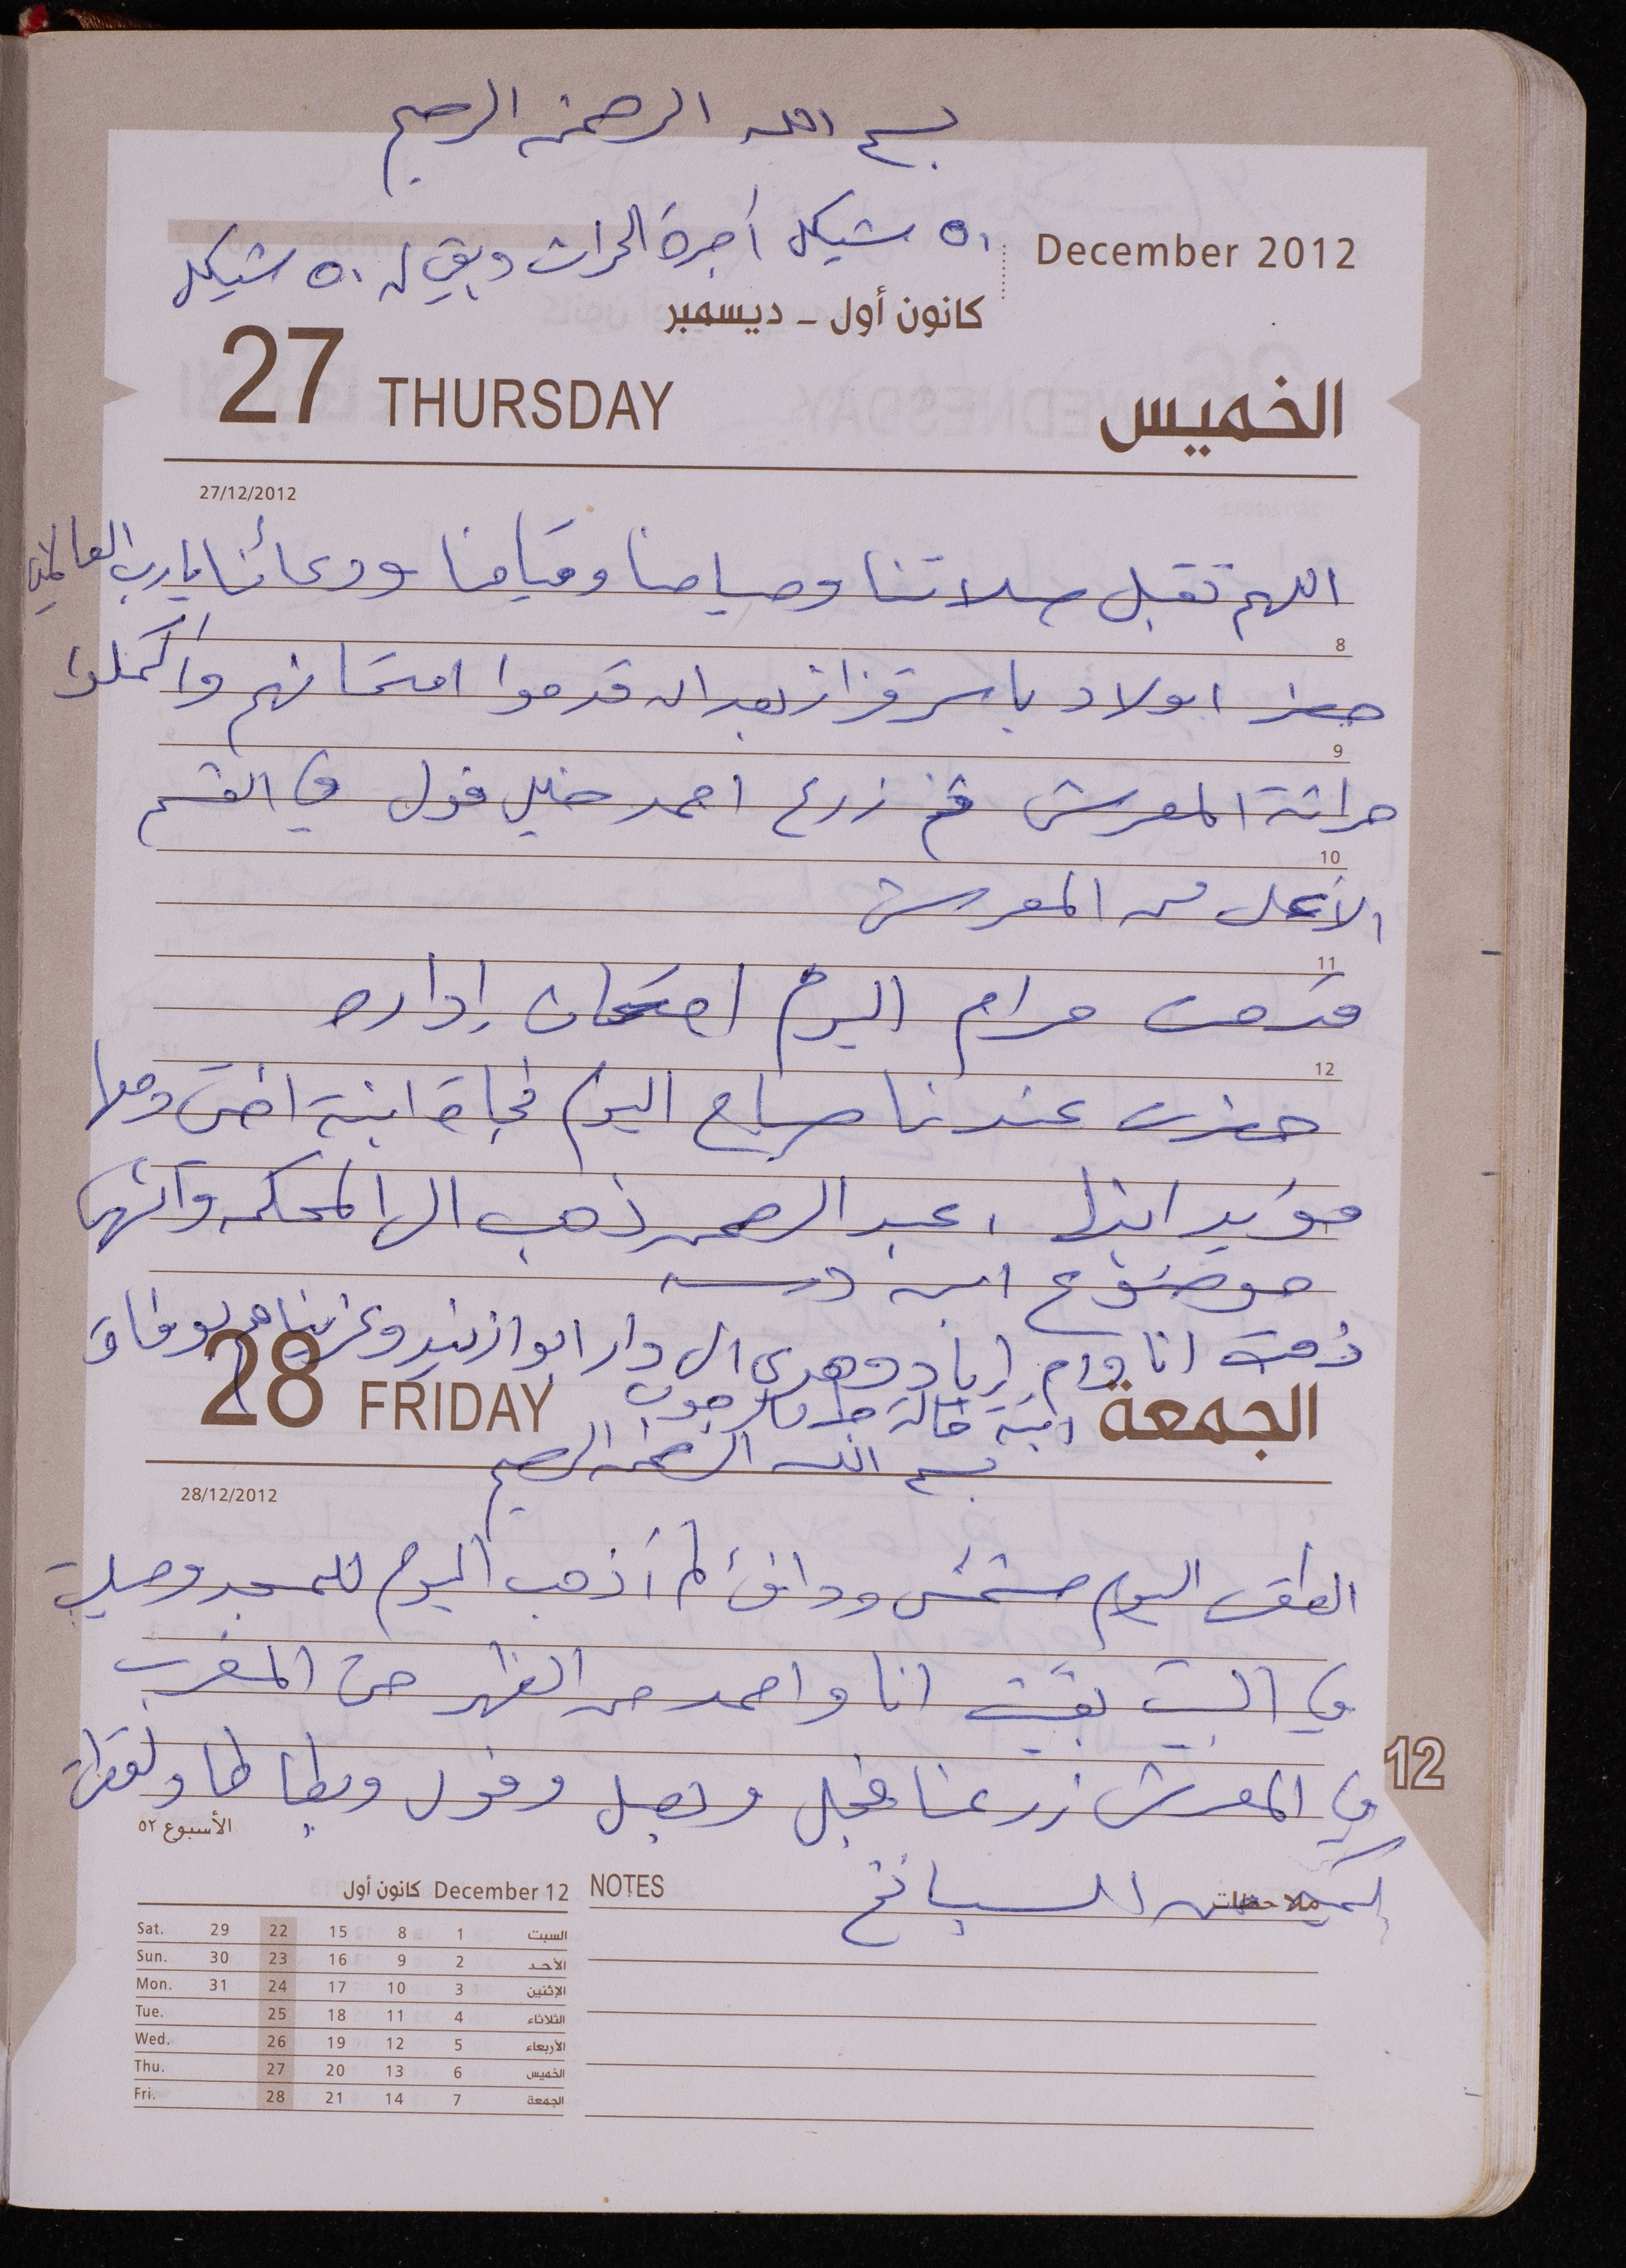 بسم الله الرحمن الرحيم
٥٠ شيكل أجرة الحراث وبقي له ٥٠ شيكل
December 2012
كانون أول - ديسمبر
27 THURSDAY الخميس
27/12/2012
اللهم تقبل صلاتنا وصيامنا وقيامنا ودعائنا يارب العالمين
8
حضر اولاد ياسر قزاز بعد ان قدموا امتحانهم واكملوا
9
حراثة المعرش زرع احمد خليل فول في القسم
10
الأعلى من المعرش
11
قدمت مرام اليوم امتحان إداره
12
حضرت عندنا صباح اليوم نجاة ابنة اختي ومعها
مؤيد ابنها ، عبد الرحمن ذهب الى المحكمه وانتهى
موضوع ابن
ذهبت انا وام إياد وهدى الى دار ابو ازنيد وعزيناهم بوفاة
ابنة خالة
28 FRIDAY الجمعة
بسم الله الرحمن الرحيم
28/12/2012
الطقس اليوم مشمس ودافئ لم أذهب اليوم للمسجد وصليت
في البيت بقيت انا واحمد من الظهر حتى المغرب
في المعرش زرعنا فجل وبصل وفول وبطاطا ولقطنا
12
كميه من السبانخ
الأسبوع ٥٢
كانون أول December 12
NOTES ملاحظات
Sat. 29 22 15 8 1 السبت
Sun. 30 23 16 9 2 الأحد
Mon. 31 24 17 10 3 الإثنين
Tue. 25 18 11 4 الثلاثاء
Wed. 26 19 12 5 الأربعاء
Thu. 27 20 13 6 الخميس
Fri. 28 21 14 7 الجمعة